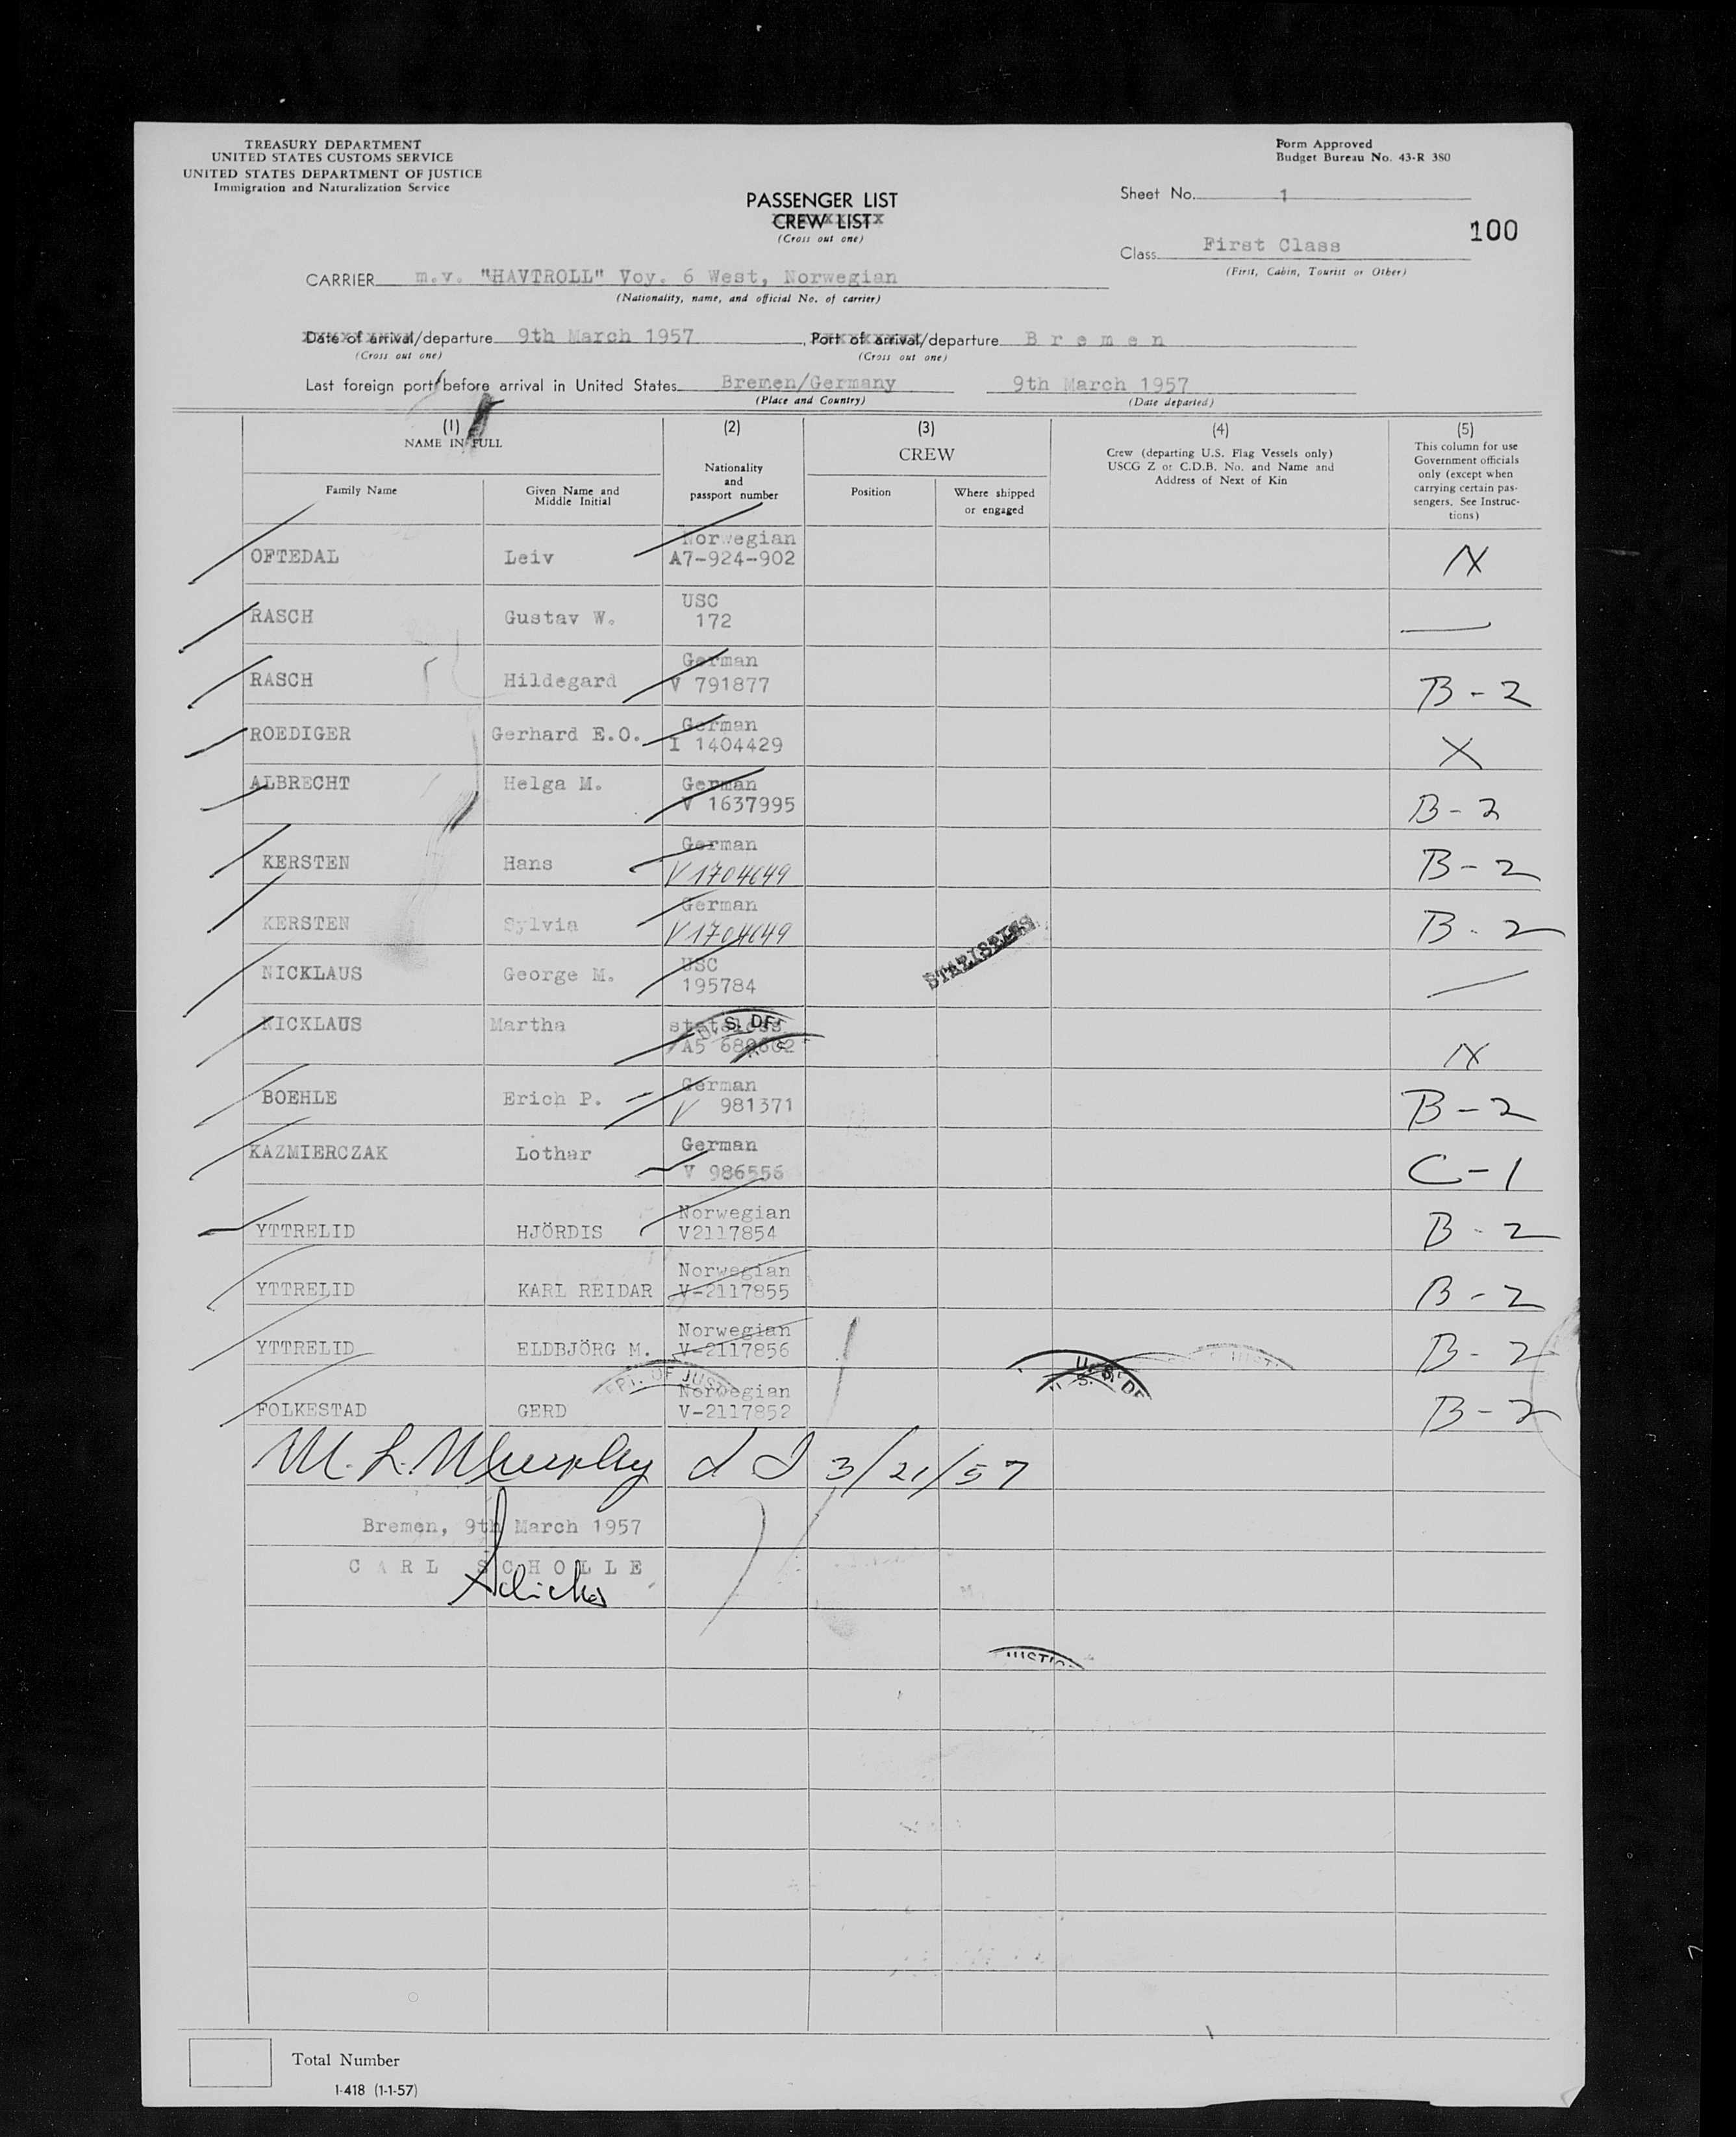 TREASURY DEPARTMENT
UNITED STATES CUSTOMS SERVICE
UNITED STATES DEPARTMENT OF JUSTICE
Immigration and Naturalization Service
Form Approved
Budget Bureau No. 43-R 380
PASSENGER LIST
CREW LIST
(Cross out one)
Sheet No. 1
100
Class First Class
(First, Cabin, Tourist or Other)
CARRIER m.v. "HAVTROLL" Voy. 6 West, Norwegian
(Nationality, name, and official No. of carrier)
Date of arrival/departure 9th March 1957, Port of arrival/departure Bremen
(Cross out one) (Cross out one)
Last foreign port before arrival in United States Bremen/Germany 9th March 1957
(Place and Country) (Date departed)
(1) (2) (3) (4) (5)
NAME IN FULL
Family Name
Given Name and
Middle Initial
Nationality
and
passport number
CREW
Position
Where shipped
or engaged
Crew (departing U.S. Flag Vessels only)
USCG Z or C.D.B. No. and Name and
Address of Next of Kin
This column for use
Government officials
only (except when
carrying certain pas-
sengers. See Instruc-
tions)
Norwegian
OFTEDAL Leiv A7-924-902 X
USC
RASCH Gustav W. 172 —
German
RASCH Hildegard V 791877 B-2
German
ROEDIGER Gerhard E.O. I 1404429 X
German
ALBRECHT Helga M. V 1637995 B-2
German
KERSTEN Hans V 1704649 B-2
German
KERSTEN Sylvia V 1704649 B-2
USC
NICKLAUS George M. 195784 —
stateless
NICKLAUS Martha A5 X
U. S. DE
German
BOEHLE Erich P. V 981371 B-2
German
KAZMIERCZAK Lothar V 986556 C-1
Norwegian
YTTRELID HJÖRDIS V2117854 B-2
Norwegian
YTTRELID KARL REIDAR V-2117855 B-2
Norwegian
YTTRELID ELDBJÖRG M. V-2117856 B-2
Norwegian
FOLKESTAD GERD V-2117852 B-2
M. L. Murphy 3/21/57
Bremen, 9th March 1957
CARL SCHOLLE
Total Number
I-418 (1-1-57)